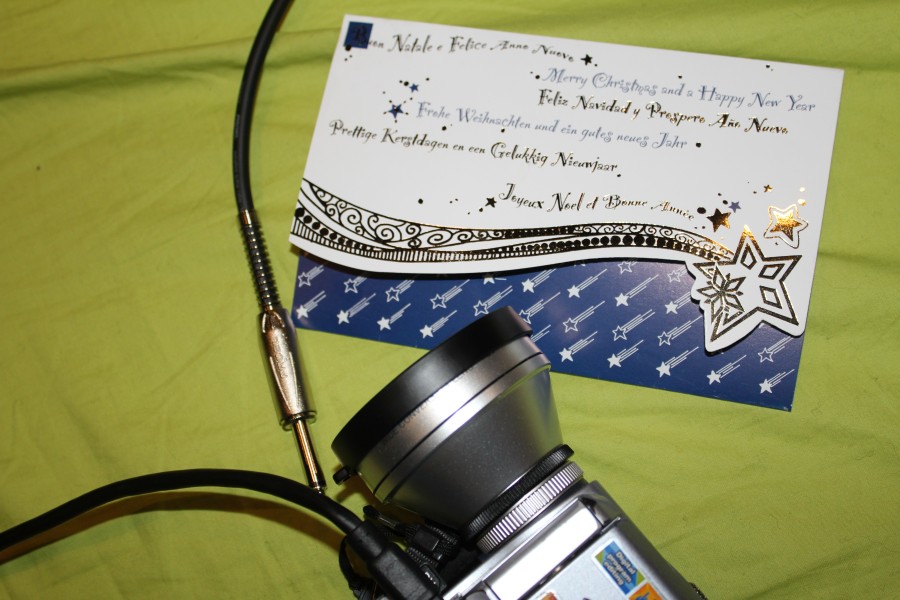 Buon Natale e Felice Anno Nuovo
Merry Christmas and a Happy New Year
Feliz Navidad y Prospero Año Nuevo
Frohe Weihnachten und ein gutes neues Jahr
Prettige Kerstdagen en een Gelukkig Nieuwjaar
Joyeux Noel et Bonne Année
Digital